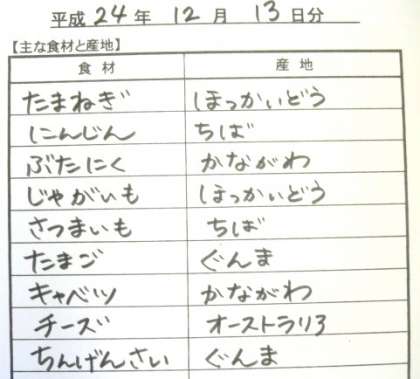 平成 24 年 12 月 13 日分
【主な食材と産地】
食材 産地
たまねぎ ほっかいどう
にんじん ちば
ぶたにく かながわ
じゃがいも ほっかいどう
さつまいも ちば
たまご ぐんま
キャベツ かながわ
チーズ オーストラリア
ちんげんさい ぐんま